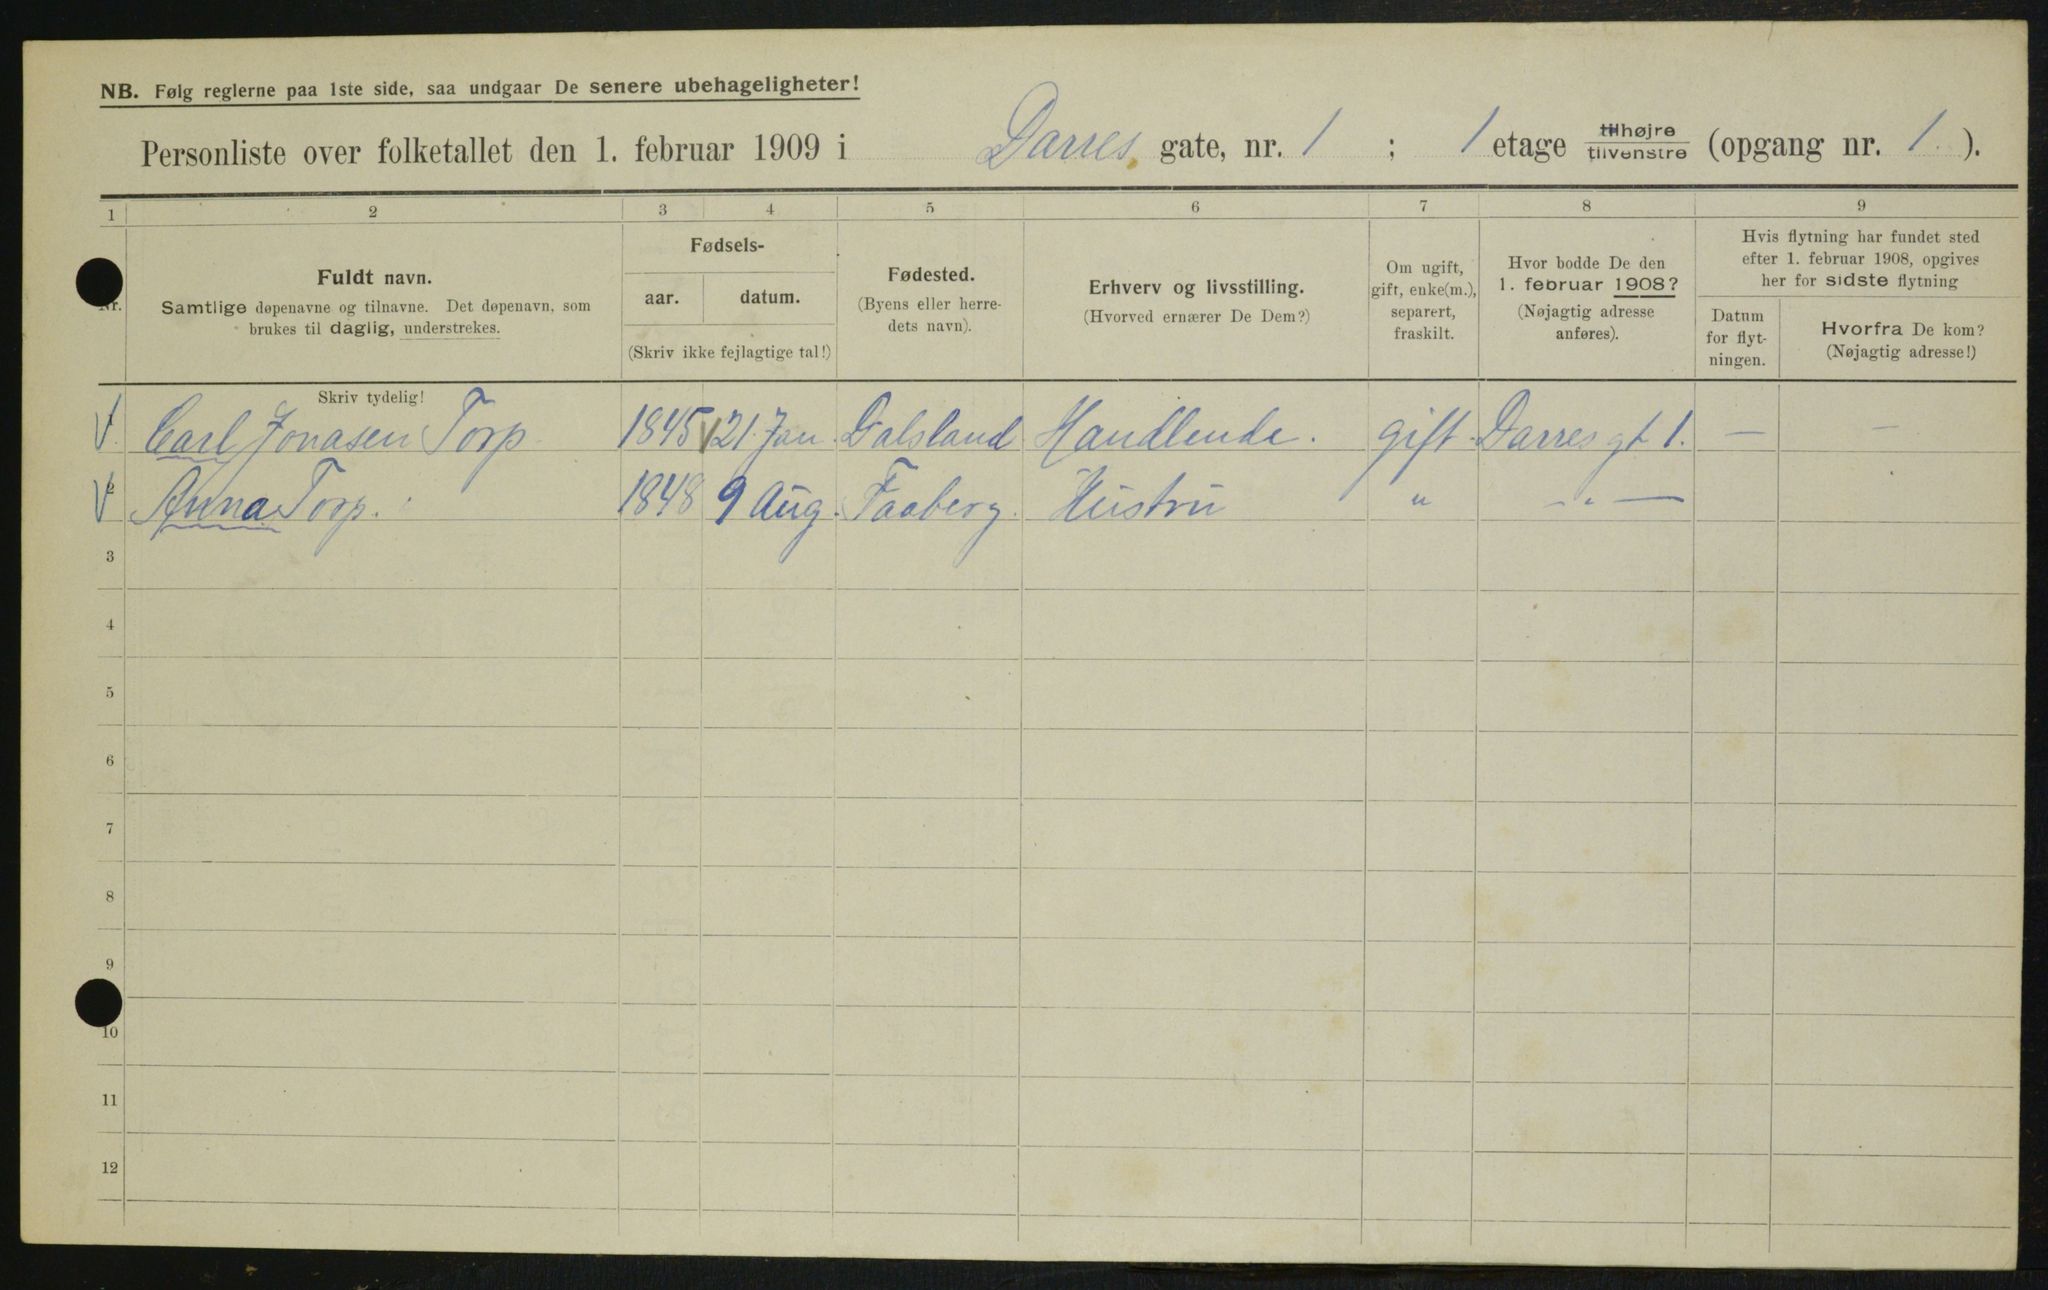 NB. Følg reglerne paa 1ste side, saa undgaar De senere ubehageligheter!
Personliste over folketallet den 1. februar 1909 i Darres gate, nr. 1 ; 1 etage tilhøjre tilvenstre (opgang nr. 1.).
1 2 3 4 5 6 7 8 9
Nr.
Fuldt navn.
Samtlige døpenavne og tilnavne. Det døpenavn, som
brukes til daglig, understrekes.
Skriv tydelig!
Fødsels-
aar. datum.
(Skriv ikke fejlagtige tal!)
Fødested.
(Byens eller herre-
dets navn).
Erhverv og livsstilling.
(Hvorved ernærer De Dem?)
Om ugift,
gift, enke(m.),
separert,
fraskilt.
Hvor bodde De den
1. februar 1908?
(Nøjagtig adresse
anføres).
Hvis flytning har fundet sted
efter 1. februar 1908, opgives
her for sidste flytning
Datum
for flyt-
ningen.
Hvorfra De kom?
(Nøjagtig adresse!)
1 Carl Jonasen Torp 1845 21 Jan. Dalsland Handlende. gift. Darres gt 1. — —
2 Anna Torp. 1848 9 Aug. Faaberg. Hustru " - " —
3
4
5
6
7
8
9
10
11
12